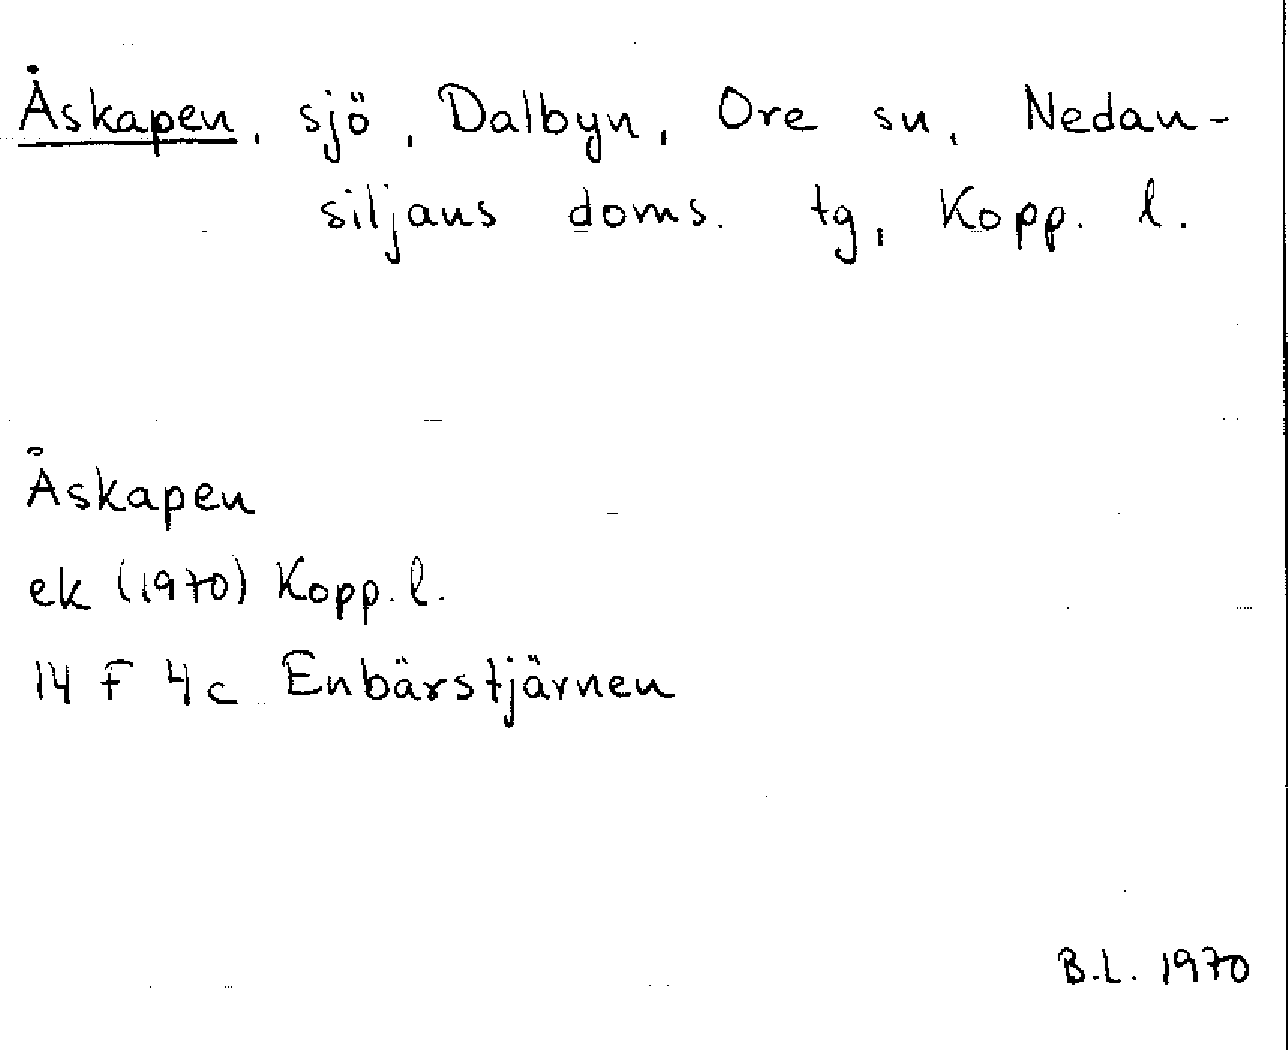 Åskapen, sjö, Dalbyn, Ore sn, Nedan-
siljans doms. tg, Kopp. l.
Åskapen
ek (1970) Kopp. l.
14 F 4c Enbärstjärnen
B.L. 1970